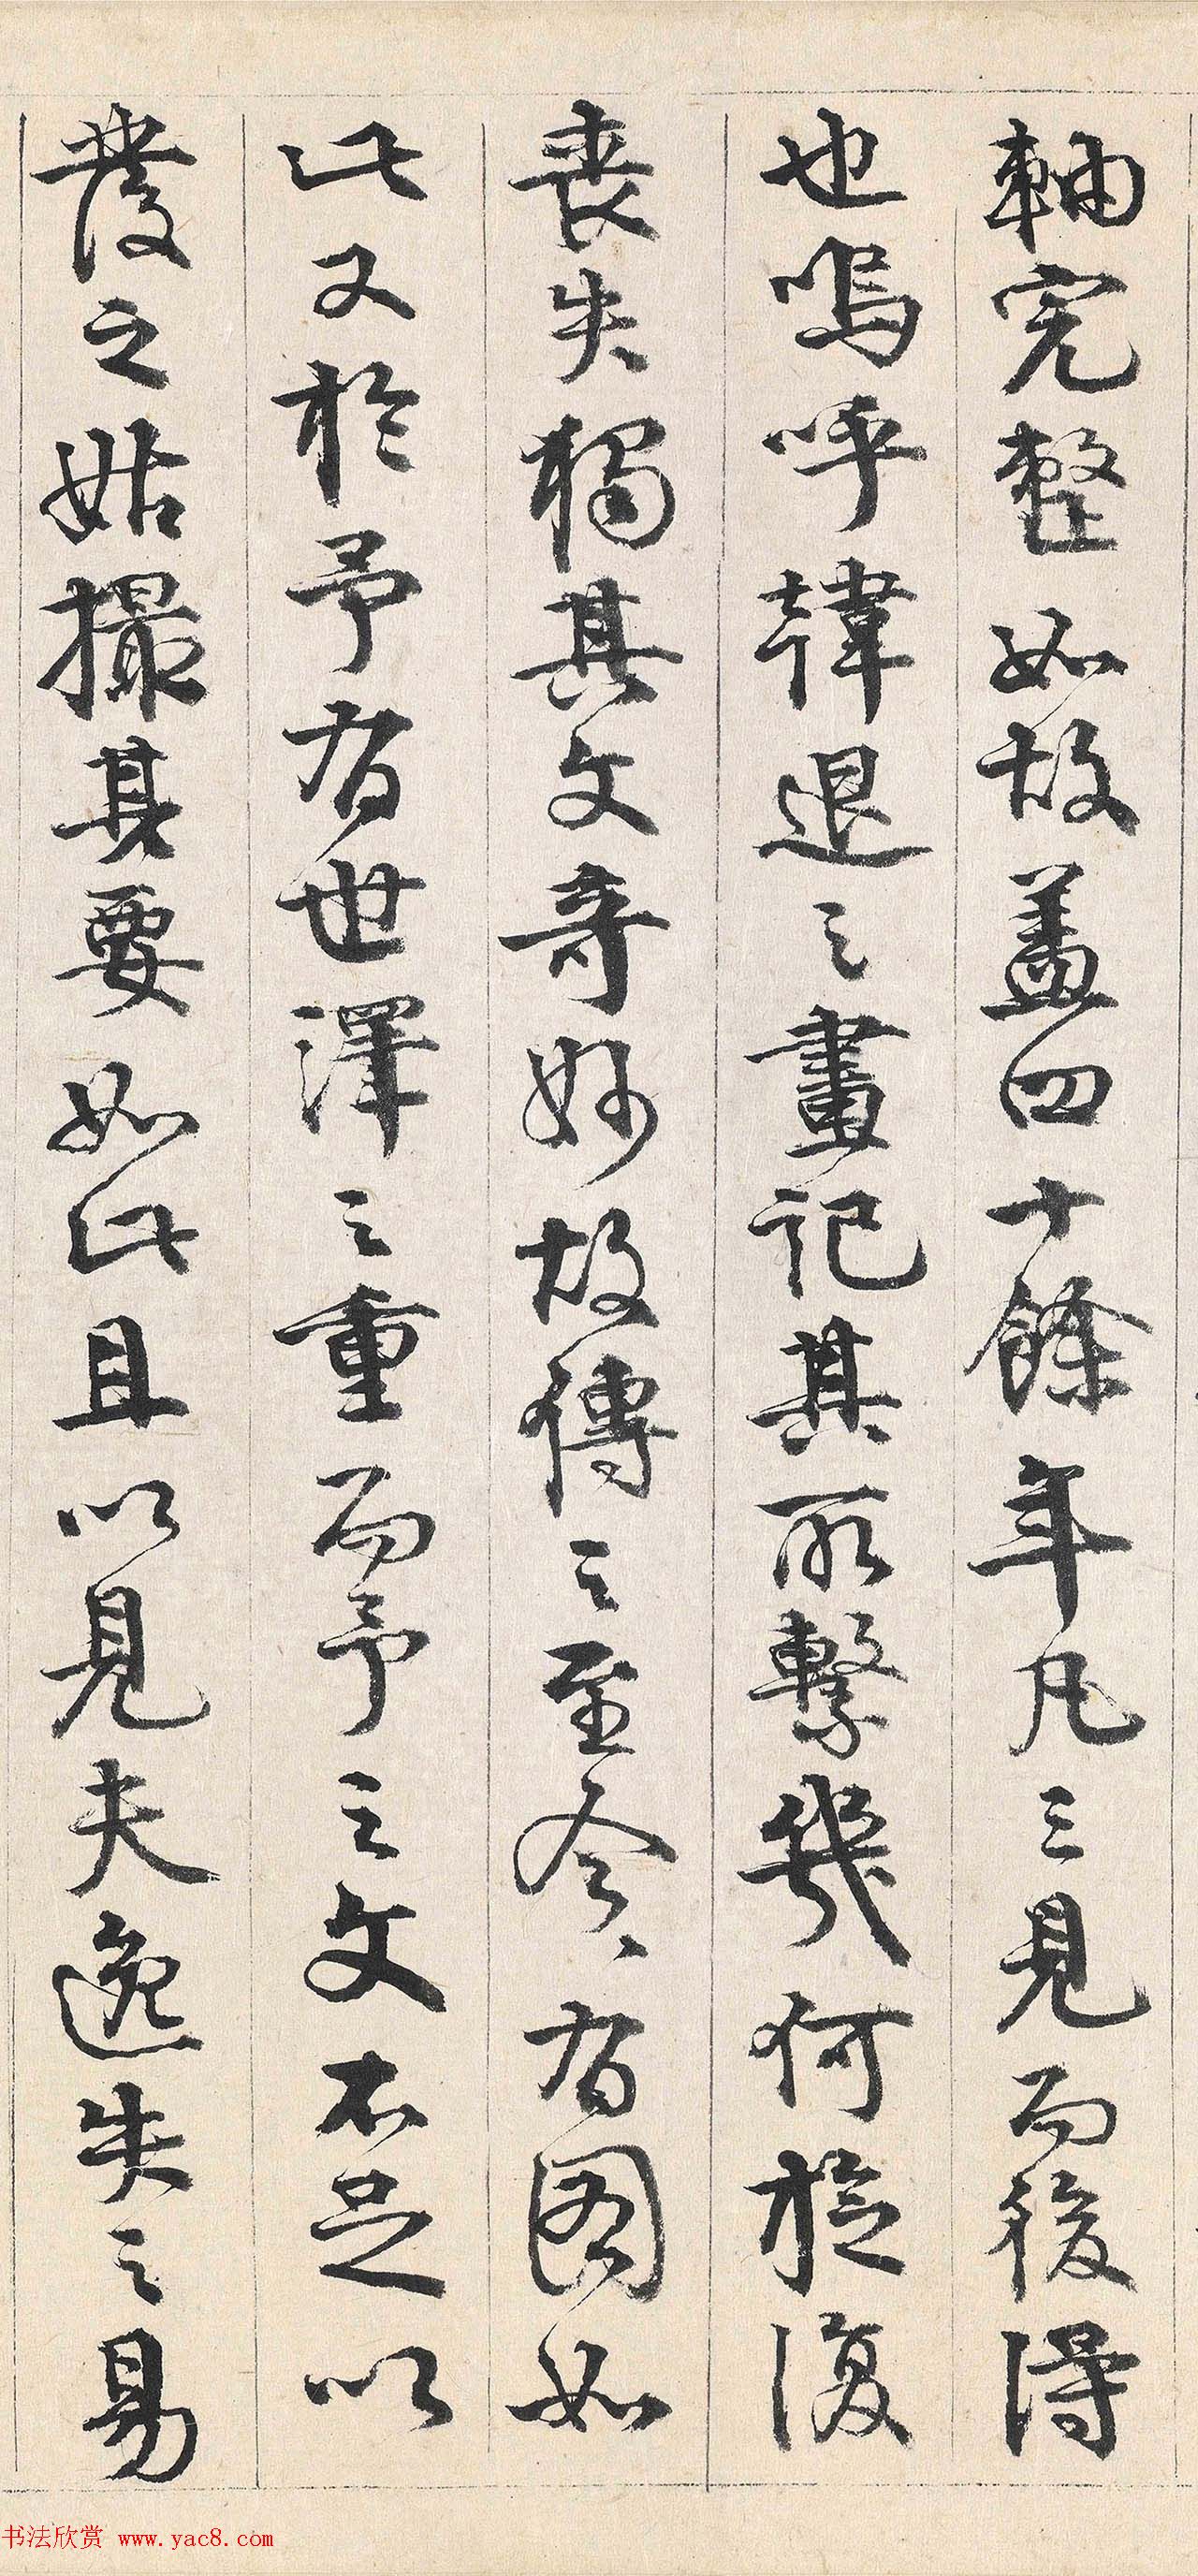 軸完整如故蓋四十餘年凡三見而後得
也嗚呼韓退之畫記其所繫幾何旋復
喪失獨其文奇妙故傳之至今今有圖如
此又於予有世澤之重而予之文不足以
發之姑撮其要如此且以見夫逸失之易
书法欣赏 www.yac8.com